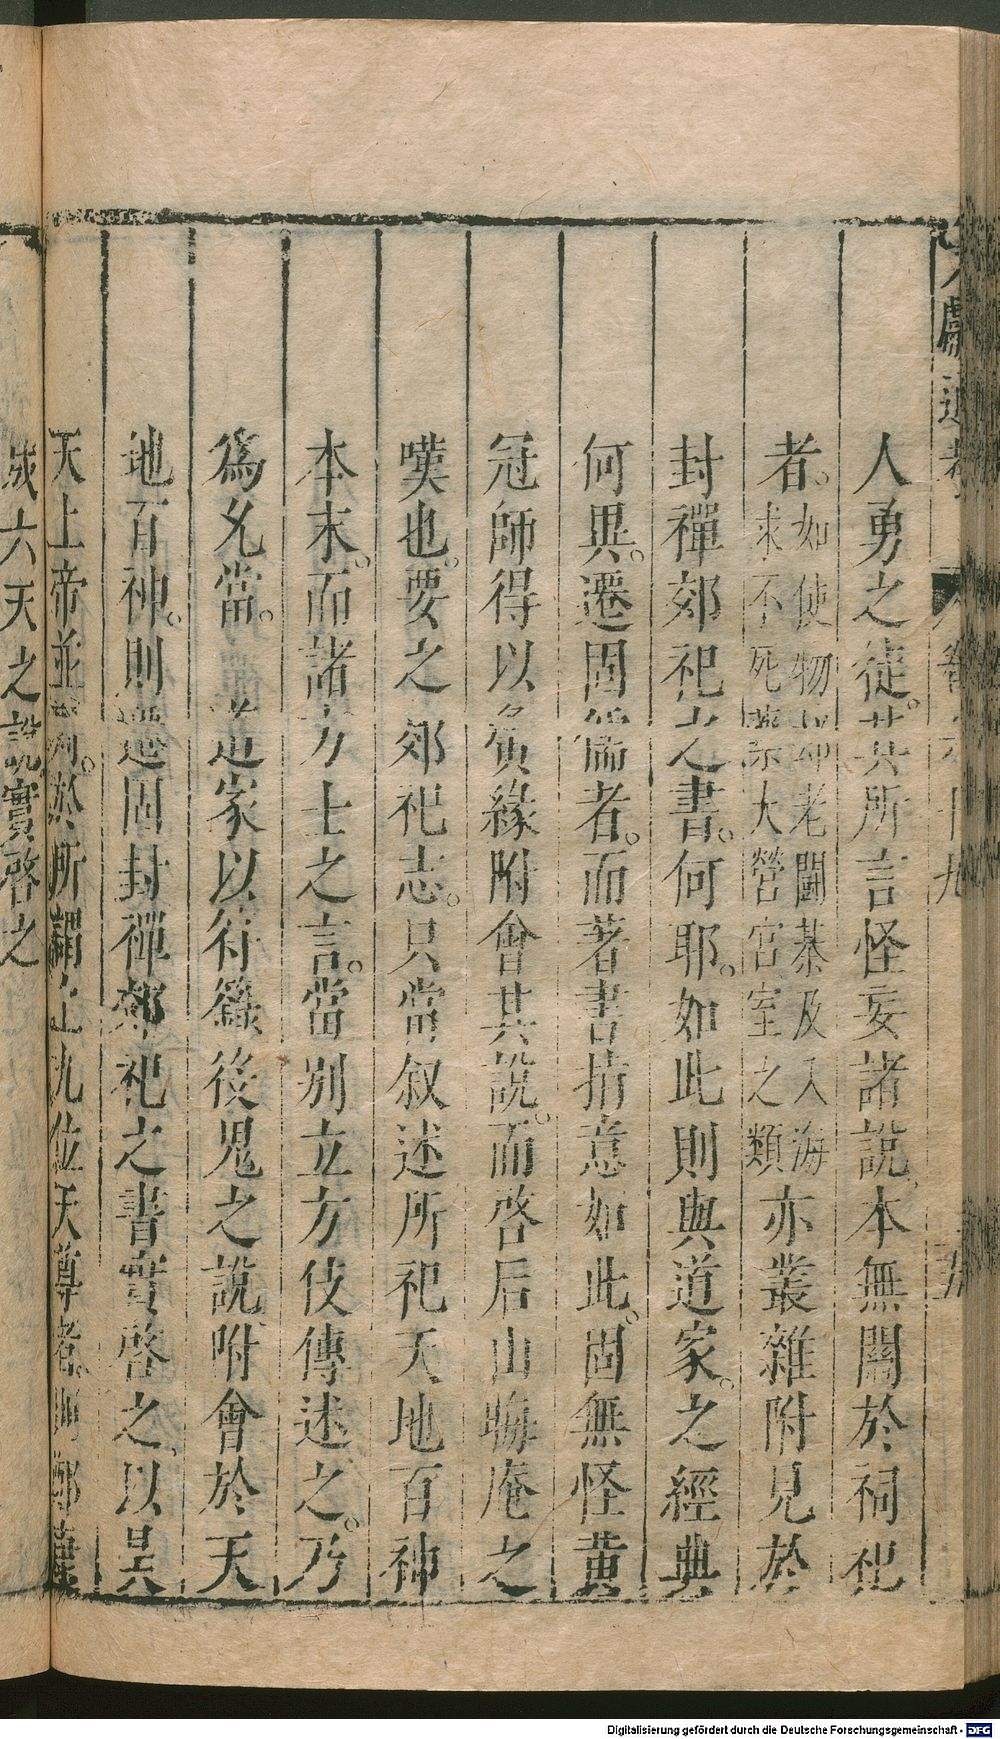 獻通考
人勇之徒。其所言怪妄諸說。本無關於祠祀
者。如使物却老鬭棊及入海求不死藥大營宮室之類亦叢雜附見於
封禪郊祀之書。何耶。如此則與道家。之經典
何異。遷固儒者。而著書指意如此。固無怪黃
冠師得以夤緣附會其說。而啓后山晦庵之
嘆也。要之郊祀志。只當叙述所祀天地百神
本末。而諸方士之言。當別立方伎傳述之。乃
爲允當。道家以符籙役鬼之說。附會於天
地百神。則遷固封禪郊祀之書實啓之。以昊
天上帝並列。於所謂上九位天尊者。則鄭康
成六天之說。實啓之
Digitalisierung gefördert durch die Deutsche Forschungsgemeinschaft - DFG